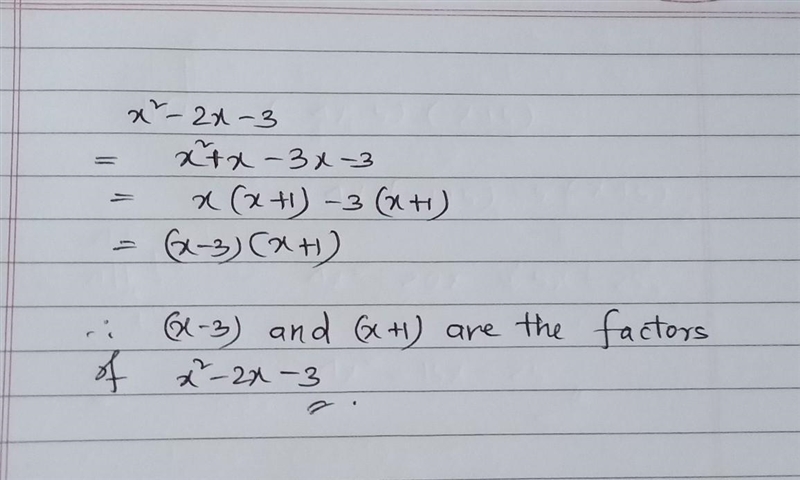 x² - 2x - 3
= x² + x - 3x - 3
= x (x+1) - 3 (x+1)
= (x-3) (x+1)
∴ (x-3) and (x+1) are the factors
of x² - 2x - 3